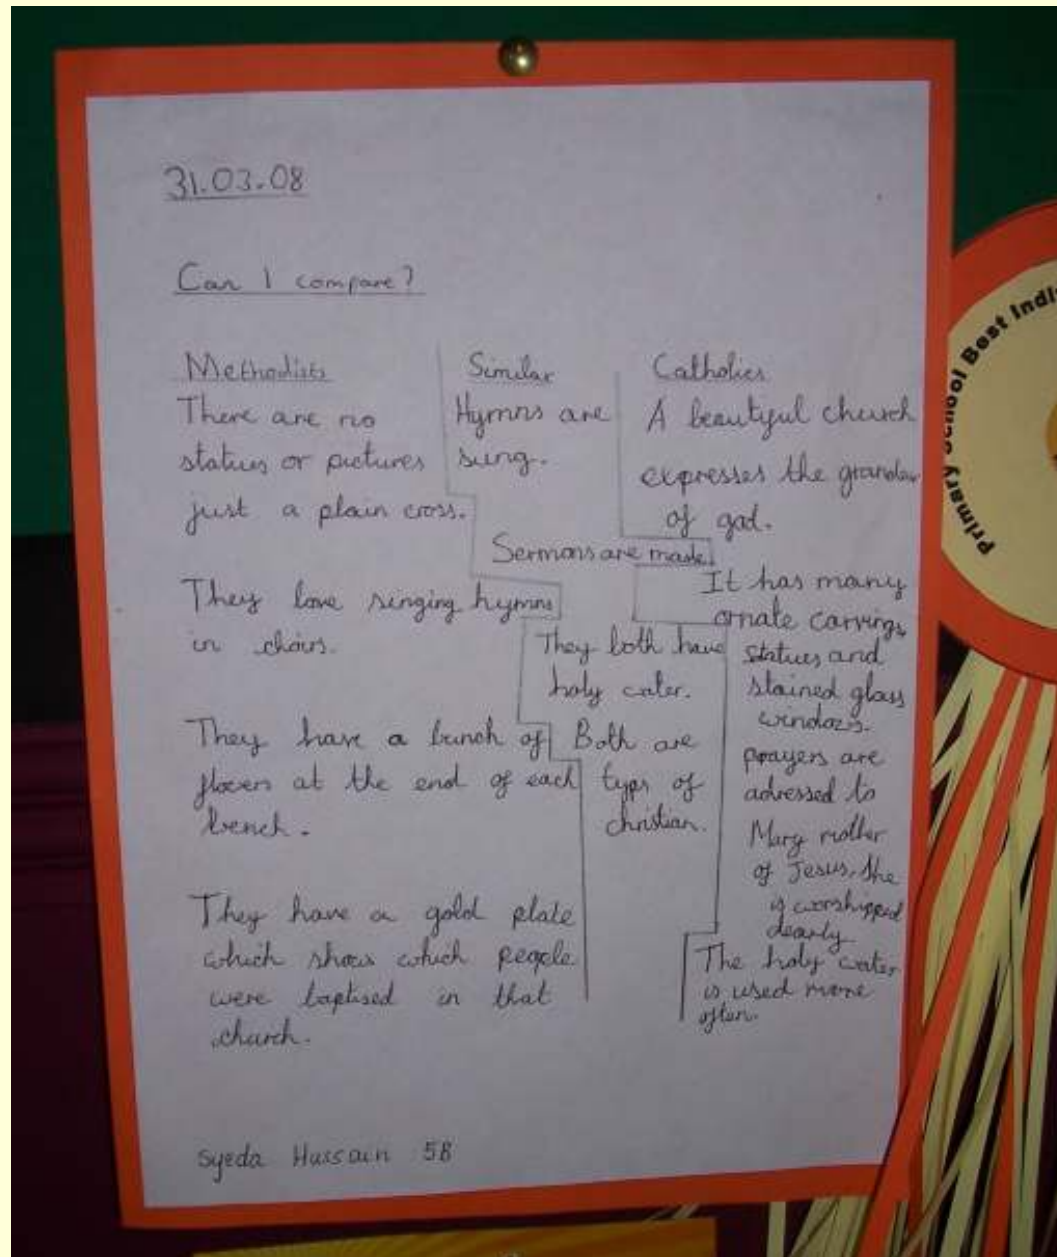 31.03.08
Can I compare?
Methodists
There are no
statues or pictures
just a plain cross.
They love singing hymns
in choirs.
They have a bunch of
flowers at the end of each
bench.
They have a gold plate
which shows which people
were baptised in that
church.
Similar
Hymns are
sung.
Sermons are made
They both have
holy water.
Both are
typs of
christian.
Catholics
A beautiful church
expresses the grandeur
of god.
It has many
ornate carvings,
statues and
stained glass
windows.
prayers are
adressed to
Mary mother
of Jesus, she
is worshipped
dearly
The holy water
is used more
often.
Syeda Hussain 5B
Primary School Best Indi